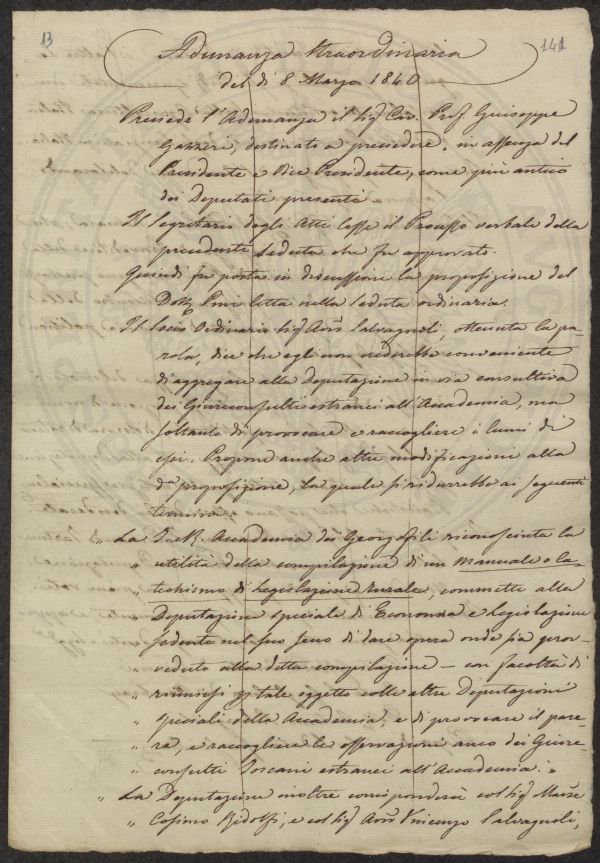 13
141
Adunanza straordinaria
del dì 8 Marzo 1840
Presiede l'Adunanza il Sig. Cav. Prof. Giuseppe
Gazzeri, destinato a presiedere, in assenza del
Presidente e Vice Presidente, come più antico
dei Deputati presenti.
Il Segretario degli Atti lesse il Processo verbale della
precedente Seduta che fu approvato.
Quindi fu posta in discussione la proposizione del
Dott. Pini letta nella Seduta ordinaria.
Il Socio Ordinario Sig. Avv. Salvagnoli, ottenuta la pa-
rola, dice che egli non crederebbe conveniente
di aggregare alla Deputazione in via consultiva
dei Giureconsulti estranei all'Accademia, ma
soltanto di provocare e raccogliere i lumi di
essi. Propone anche altre modificazioni alla
d.a proposizione, la quale si ridurrebbe ai seguenti
termini.
" La I. e R. Accademia dei Georgofili riconosciuta la
" utilità della compilazione di un Manuale o Ca-
techismo di Legislazione rurale, commette alla
Deputazione speciale di Economia e Legislazione
sedente nel suo seno di dare opera onde sia prov-
" veduto alla detta compilazione – con facoltà di
" riunirsi p. tale oggetto colle altre Deputazioni
" speciali della Accademia, e di provocare il pare-
" re, e raccogliere le osservazioni anco dei Giure-
" consulti Toscani estranei all'Accademia. "
" La Deputazione inoltre corrisponderà col Sig. March.e
" Cosimo Ridolfi, e col Sig. Avv. Vincenzo Salvagnoli,